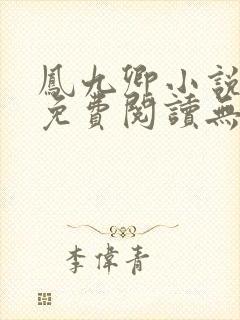 鳳九卿小說
免費閱讀無
李偉青